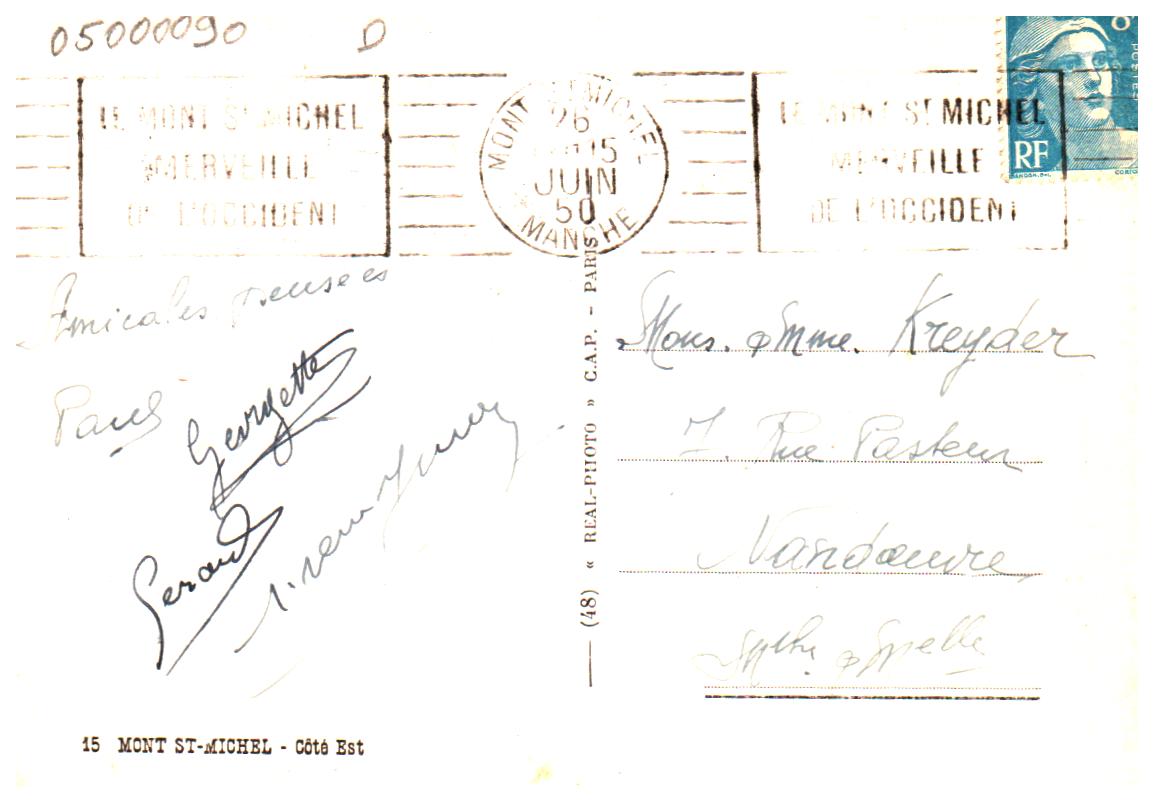 05000090 D
LE MONT ST MICHEL
MERVEILLE
DE L'OCCIDENT
MONT ST MICHEL
26
15
JUIN
50
MANCHE
LE MONT ST MICHEL
MERVEILLE
DE L'OCCIDENT
8
POSTES
RF
GANDON. DEL.
Amicales pensées
Paul
Georgette
Gerard
Mons. & Mme. Kreyder
7. Rue Pasteur
Vandœuvre
Mthe & Mselle
(48) « REAL-PHOTO » C.A.P. - PARIS
15 MONT ST-MICHEL - Côté Est